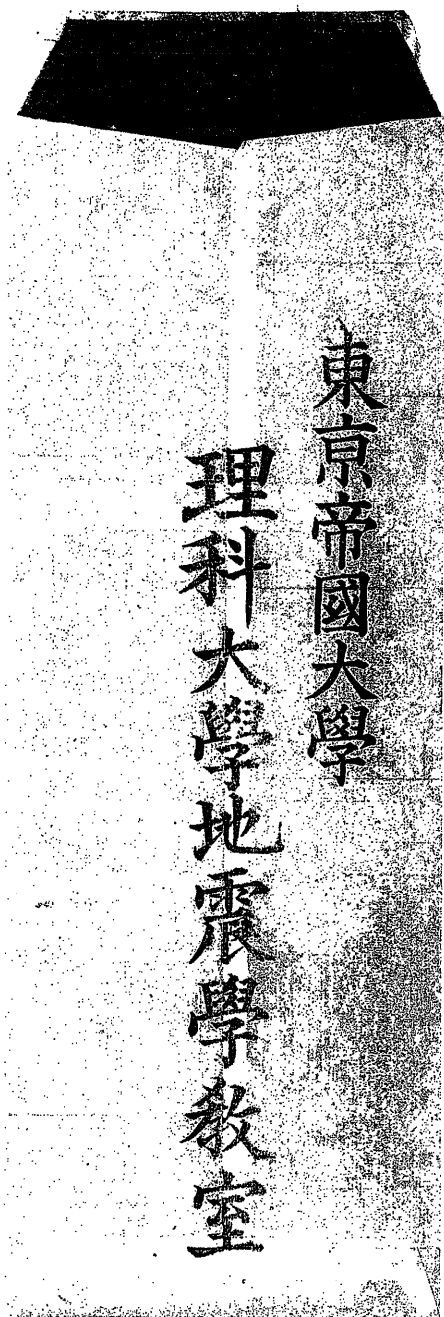 東京帝國大學
理科大學地震學教室